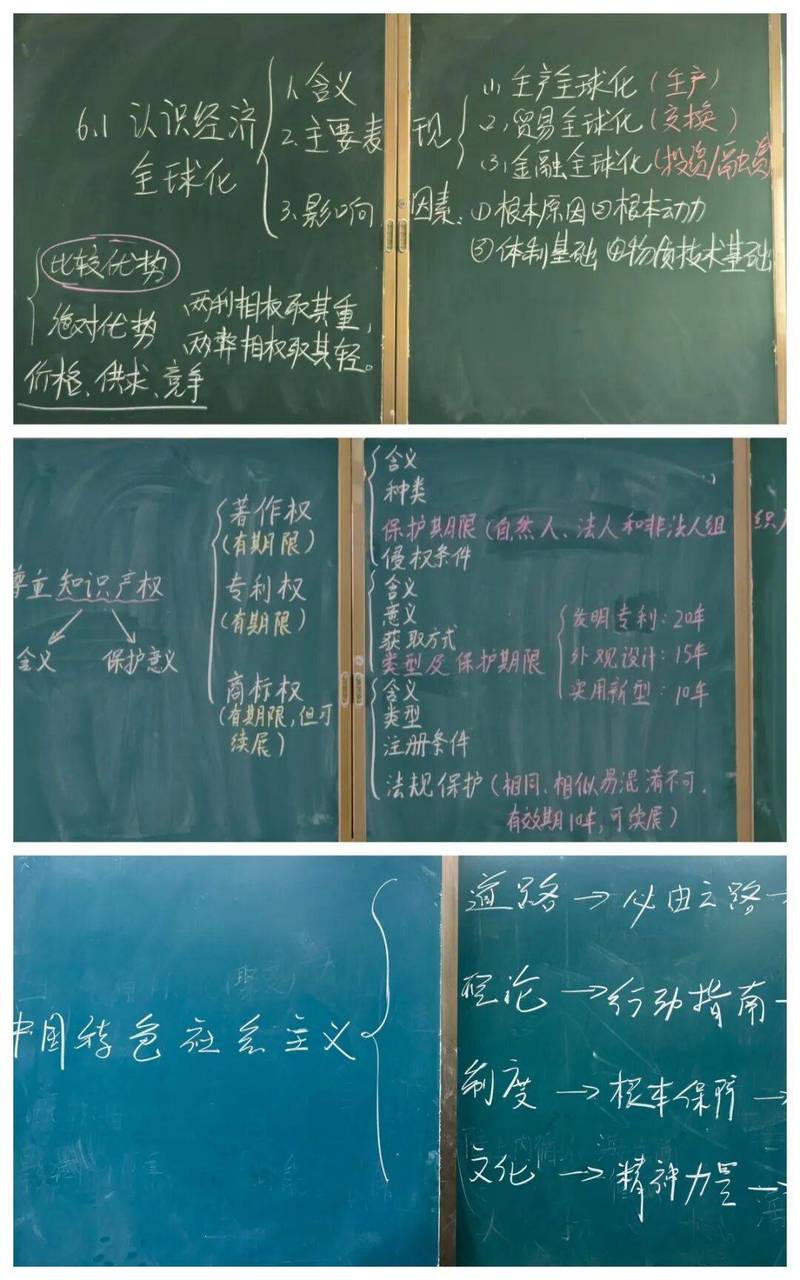 6.1 认识经济
全球化
1.含义
2.主要表现
(1)生产全球化(生产)
(2)贸易全球化(交换)
(3)金融全球化(投资/融资)
3.影响因素:①根本原因②根本动力
③体制基础④物质技术基础
比较优势
绝对优势
两利相权取其重,
两弊相权取其轻。
价格、供求、竞争
尊重知识产权
含义
保护意义
著作权
(有期限)
专利权
(有期限)
商标权
(有期限,但可
续展)
含义
种类
保护期限(自然人、法人和非法人组织)
侵权条件
含义
意义
获取方式
类型及保护期限
发明专利:20年
外观设计:15年
实用新型:10年
含义
类型
注册条件
法规保护(相同、相似易混淆不可,
有效期10年,可续展)
中国特色社会主义
道路→必由之路→
理论→行动指南→
制度→根本保障→
文化→精神力量→